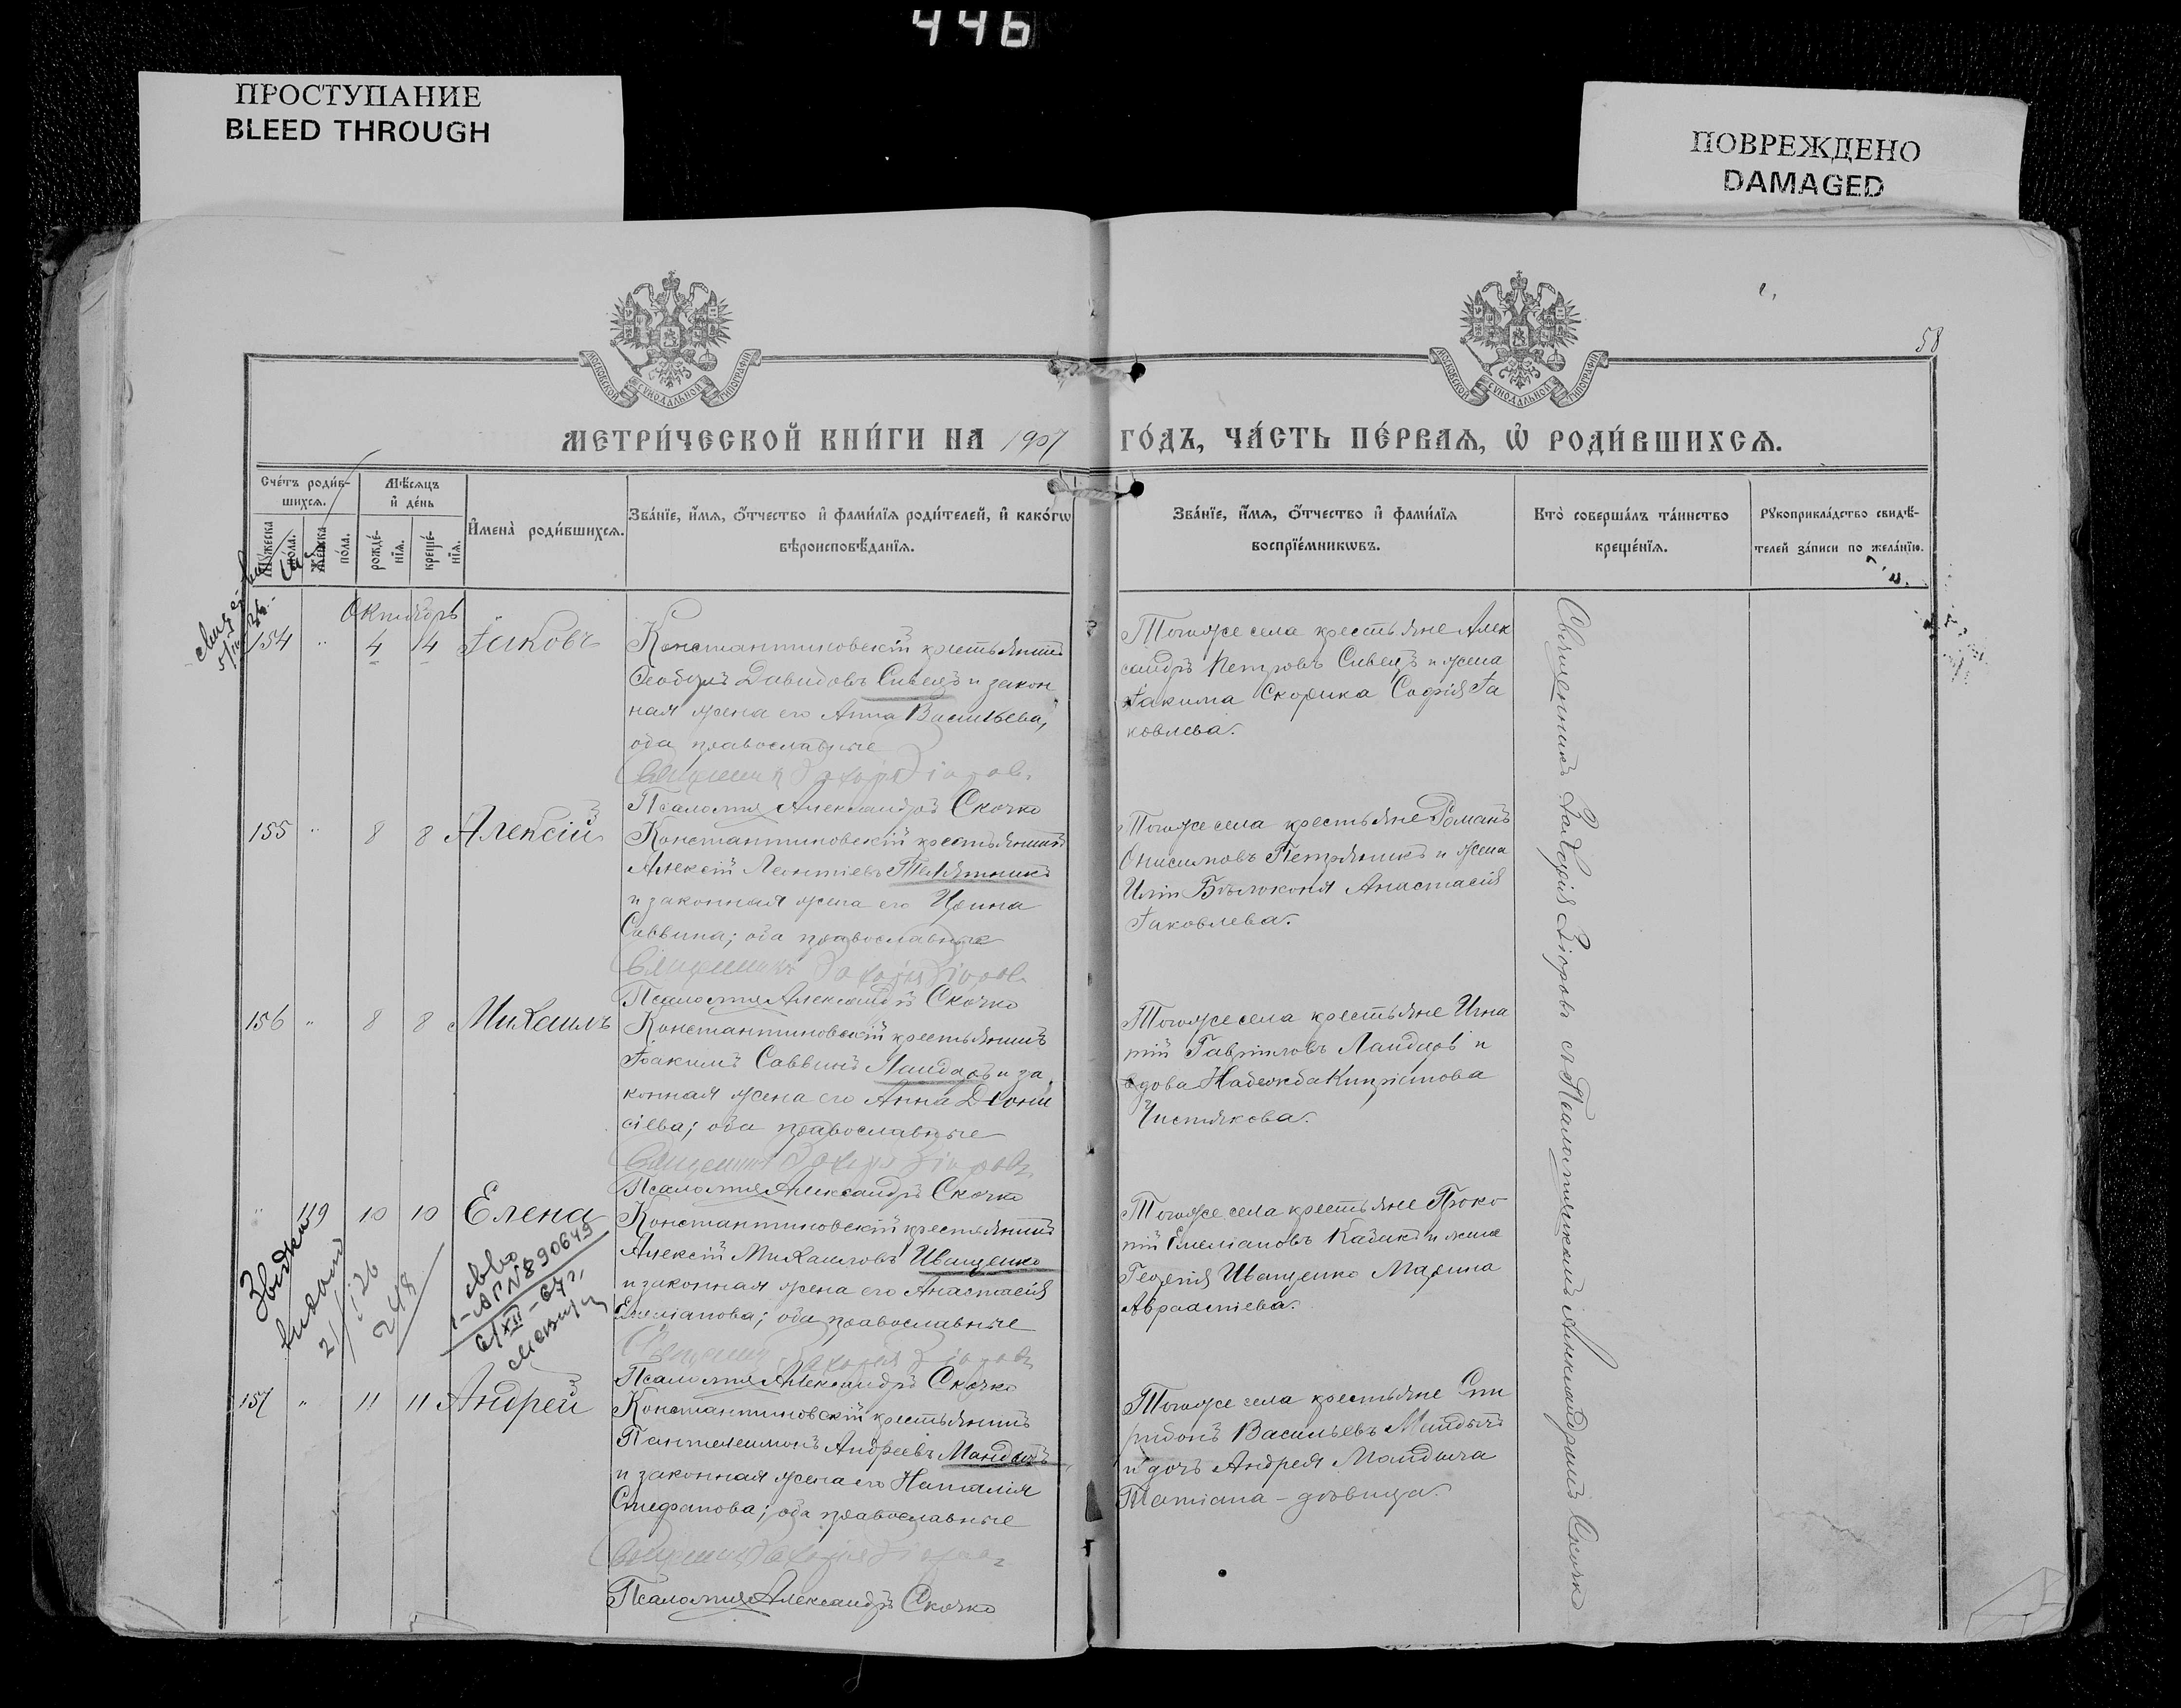 446
ПРОСТУПАНИЕ
BLEED THROUGH
ПОВРЕЖДЕНО
DAMAGED
58
МОСКОВСКОЙ СѴНОДАЛЬНОЙ ТИПОГРАФІИ
МОСКОВСКОЙ СѴНОДАЛЬНОЙ ТИПОГРАФІИ
МЕТРИ́ЧЕСКОЙ КНИ́ГИ НА 1907 ГО́ДЪ, ЧА́СТЬ ПЕ́РВАѦ, Ѡ҆ РОДИ́ВШИХСѦ.
Сче́тъ роди́в-
шихсѧ.
Мꙋ́жеска
по́ла.
Же́нска
по́ла.
Мѣ́сѧцъ
и҆ де́нь
рожде́-
нїѧ.
креще́-
нїѧ.
И҆мена̀ роди́вшихсѧ.
Зва́нїе, и҆́мѧ, ѻ҆́тчество и҆ фами́лїѧ роди́телей, и҆ како́гѡ
вѣроисповѣ́данїѧ.
Зва́нїе, и҆́мѧ, ѻ҆́тчество и҆ фами́лїѧ
воспрїе́мникѡвъ.
Кто̀ соверша́лъ та́инство
креще́нїѧ.
Рꙋкоприкла́дство свидѣ́-
телей за́писи по жела́нїю.
Октябрь
154 " 4 14 Іаковъ
Константиновскій крестьянинъ
Давидовъ Сивецъ и закон
ная жена его Анна Васильева,
оба православные
Священникъ Захарія Зіоровъ
Псаломщ Александръ Скочко
Тогоже села крестьяне Алек
сандръ Петровъ Сивецъ и жена
Іакима Скорика Софія Іа
ковлева.
155 " 8 8 Алексій
Константиновскій крестьянинъ
Алексій Леонтіевъ Телятникъ
и законная жена его Ирина
Саввина; оба православные
Священникъ Захарія Зіоровъ
Псаломщ Александръ Скочко
Тогоже села крестьяне Романъ
Онисимовъ Петряникъ и жена
Иліи Бѣлоконя Анастасія
Іаковлева.
156 " 8 8 Михаилъ
Константиновскій крестьянинъ
Іоакимъ Саввинъ Ландаръ и за
конная жена его Анна Діони
сіева; оба православные
Священникъ Захарія Зіоровъ
Псаломщ Александръ Скочко
Тогоже села крестьяне Игна
тій Гавріиловъ Ландаръ и
вдова Надежда Кипріянова
Чистякова.
" 119 10 10 Елена
Константиновскій крестьянинъ
Алексій Михаиловъ Иващенко
и законная жена его Анастасія
Емеліанова; оба православные
Священникъ Захарія Зіоровъ
Псаломщ Александръ Скочко
Тогоже села крестьяне Проко
пій Емеліановъ Кабакъ и жена
Георгія Иващенко Марина
№ 890649
157 " 11 11 Андрей
Константиновскій крестьянинъ
Пантелеимонъ Андреевъ Мандычъ
и законная жена его Наталія
Стефанова; оба православные
Священникъ Захарія Зіоровъ
Псаломщ Александръ Скочко
Тогоже села крестьяне Спи
ридонъ Васильевъ Мандычъ
и дочь Андрея Мандыча
Татіана - дѣвица.
Священникъ Захарія Зіоровъ съ Псаломщикомъ Александромъ Скочко